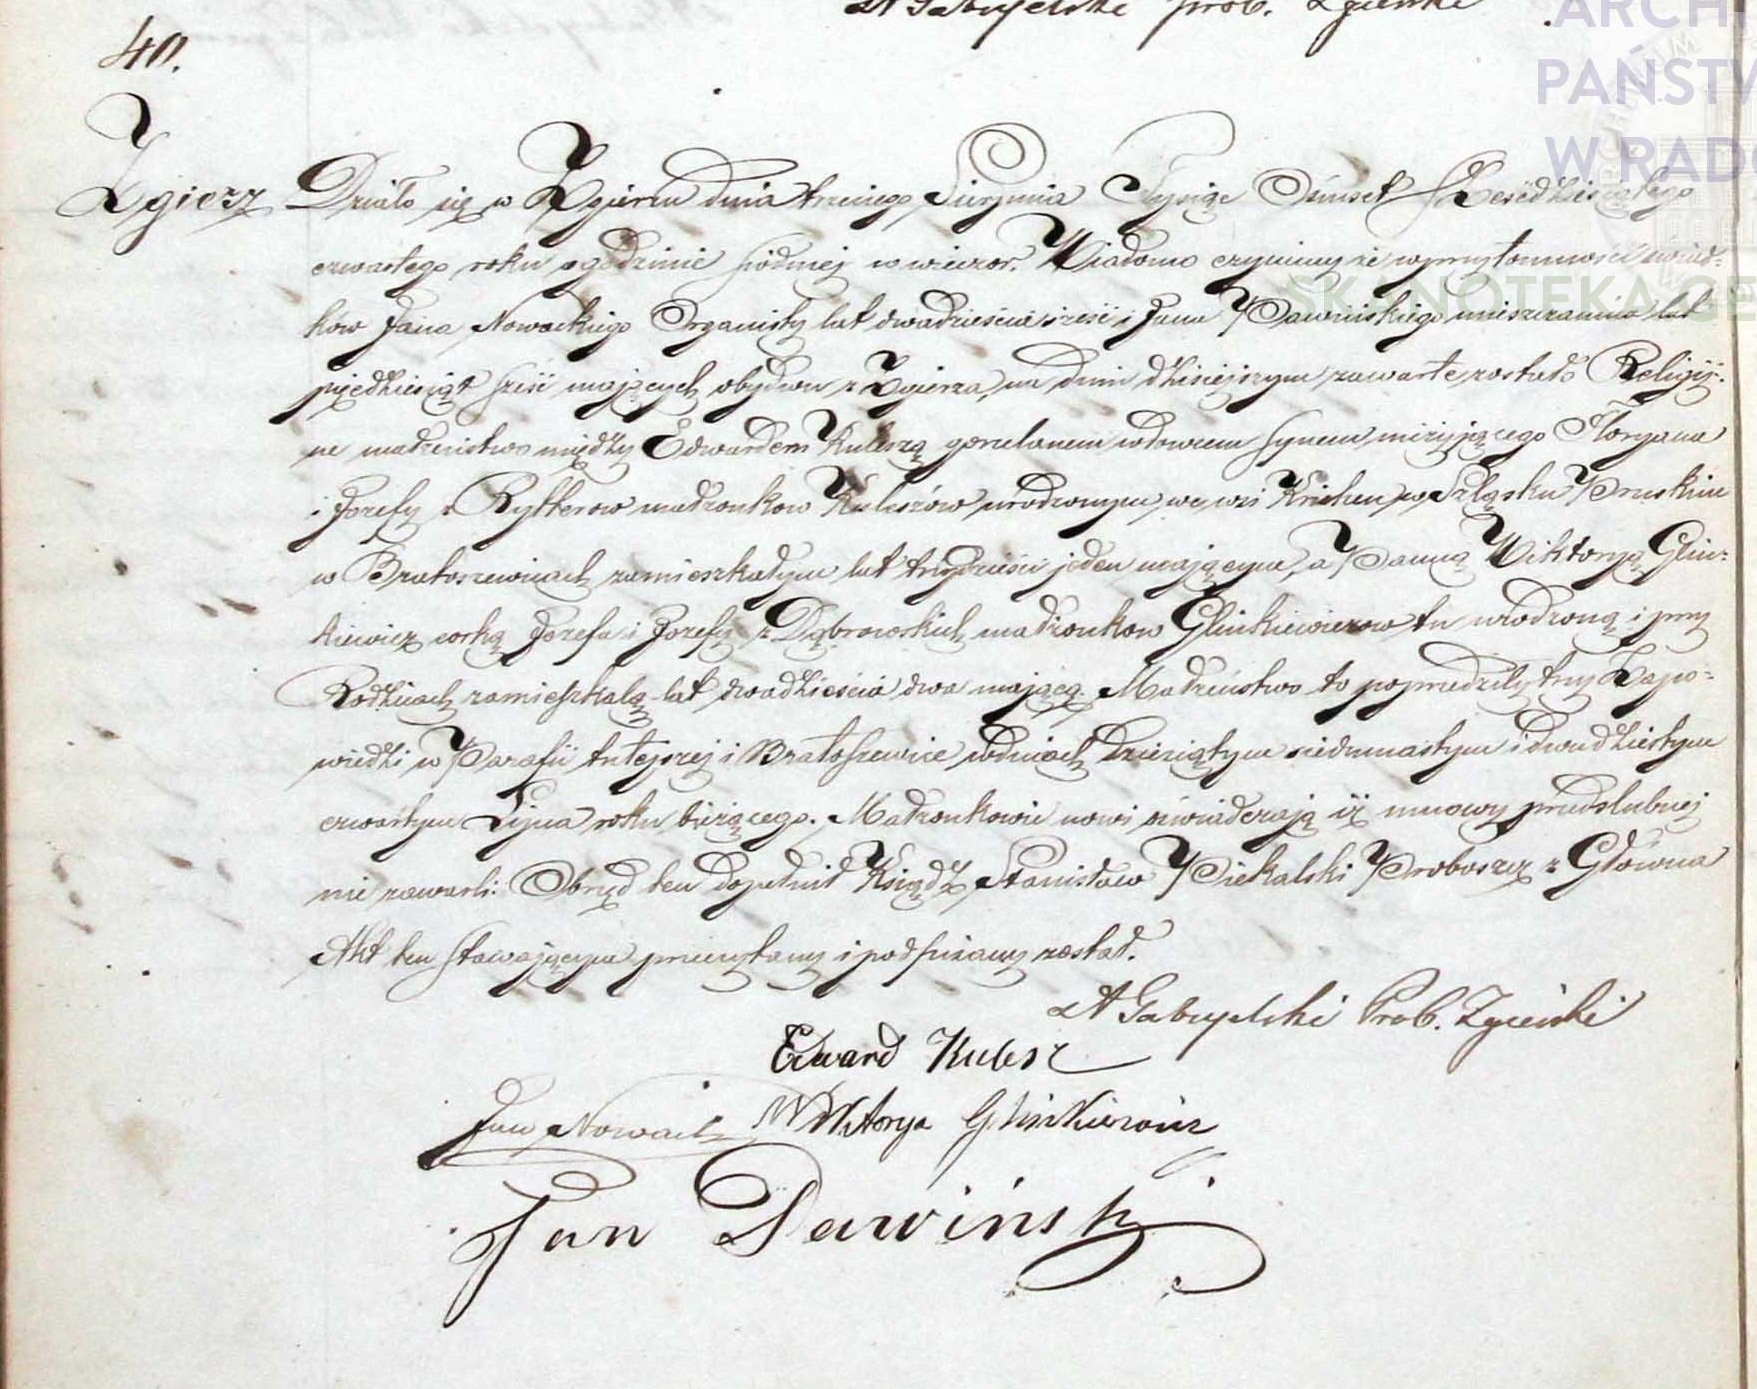 A Gabryelski prob. Zgierski
40.
Zgierz
Działo się w Zgierzu dnia trzeciego Sierpnia Tysiąc Ośmset Sześćdziesiątego
czwartego roku o godzinie siódmej w wieczor. Wiadomo czyniemy że w przytomności świad=
ków Jana Nowackiego Organisty lat dwadzieścia sześć i Jana Pawińskiego mieszczanina lat
pięćdziesiąt sześć mających obydwu z Zgierza, na dniu dzisiejszym zawarte zostało Religij=
ne małżeństwo między Edwardem Kuleszą gorzelanem wdowcem synem nieżyjącego Floryana
i Józefy z Rytterow małżonkow Kuleszów urodzonym we wsi Krichen w Szląsku Pruskim
w Bratoszewicach zamieszkałym lat trzydzieści jeden mającym, a Panną Wiktoryą Glin=
kiewicz corką Jozefa i Jozefy z Dąbrowskich małżonkow Glinkiewiczow tu urodzoną i przy
Rodzicach zamieszkałą lat dwadzieścia dwa mającą. Małżeństwo to poprzedziły trzy Zapo=
wiedzi w Parafii tutejszej i Bratoszewice w dniach dziesiątym siedmnastym i dwudziestym
czwartym Lipca roku bieżącego. Małżonkowie nowi oświadczają iż umowy przedślubnej
nie zawarli. Obrzęd ten dopełnił Ksiądz Stanisław Piekalski Proboszcz z Głowna
Akt ten stawającym przeczytany i podpisany został.
A Gabryelski Prob. Zgierski
Edward Kulesz
Jan Nowacki Wiktorya Glinkiewicz
Jan Pawiński
ARCHI
PAŃSTW
W RADO
SKANOTEKA GE